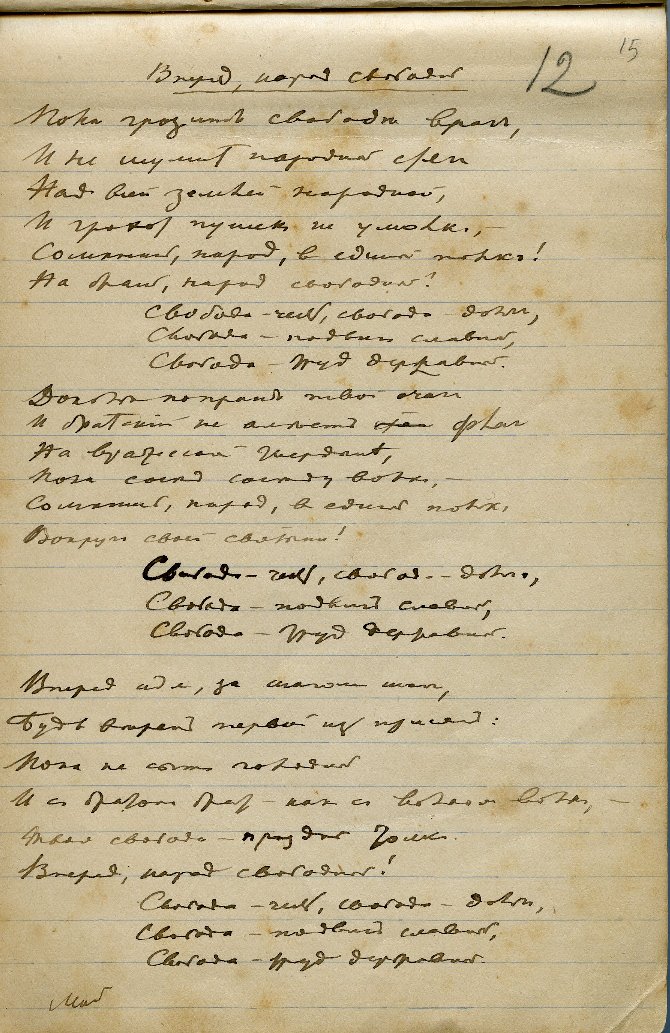 15
12
Вперед, народ свободный
Пока грозит свободе враг,
И не шумит народный стяг
Над всей землей народной,
И грохот пушек не умолк, –
Сомкнись, народ, в единый полк!
На брань, народ свободный!
Свобода – честь, свобода – долг,
Свобода – подвиг славный,
Свобода – труд державный.
попран твой очаг
И братский не флаг
На вражеской твердыне,
Пока сосед соседу волк, –
Сомкнись, народ, в единый полк
Вокруг своей святыни!
Свобода – честь, свобода – долг,
Свобода – подвиг славный,
Свобода – труд державный.
Вперед иди, за шагом шаг,
Будь верен первой из присяг:
Пока не сыт голодный
И с братом брат – как с волком волк, –
Твоя свобода – праздный толк.
Вперед, народ свободный!
Свобода – честь, свобода – долг,
Свобода – подвиг славный,
Свобода – труд державный.
Май